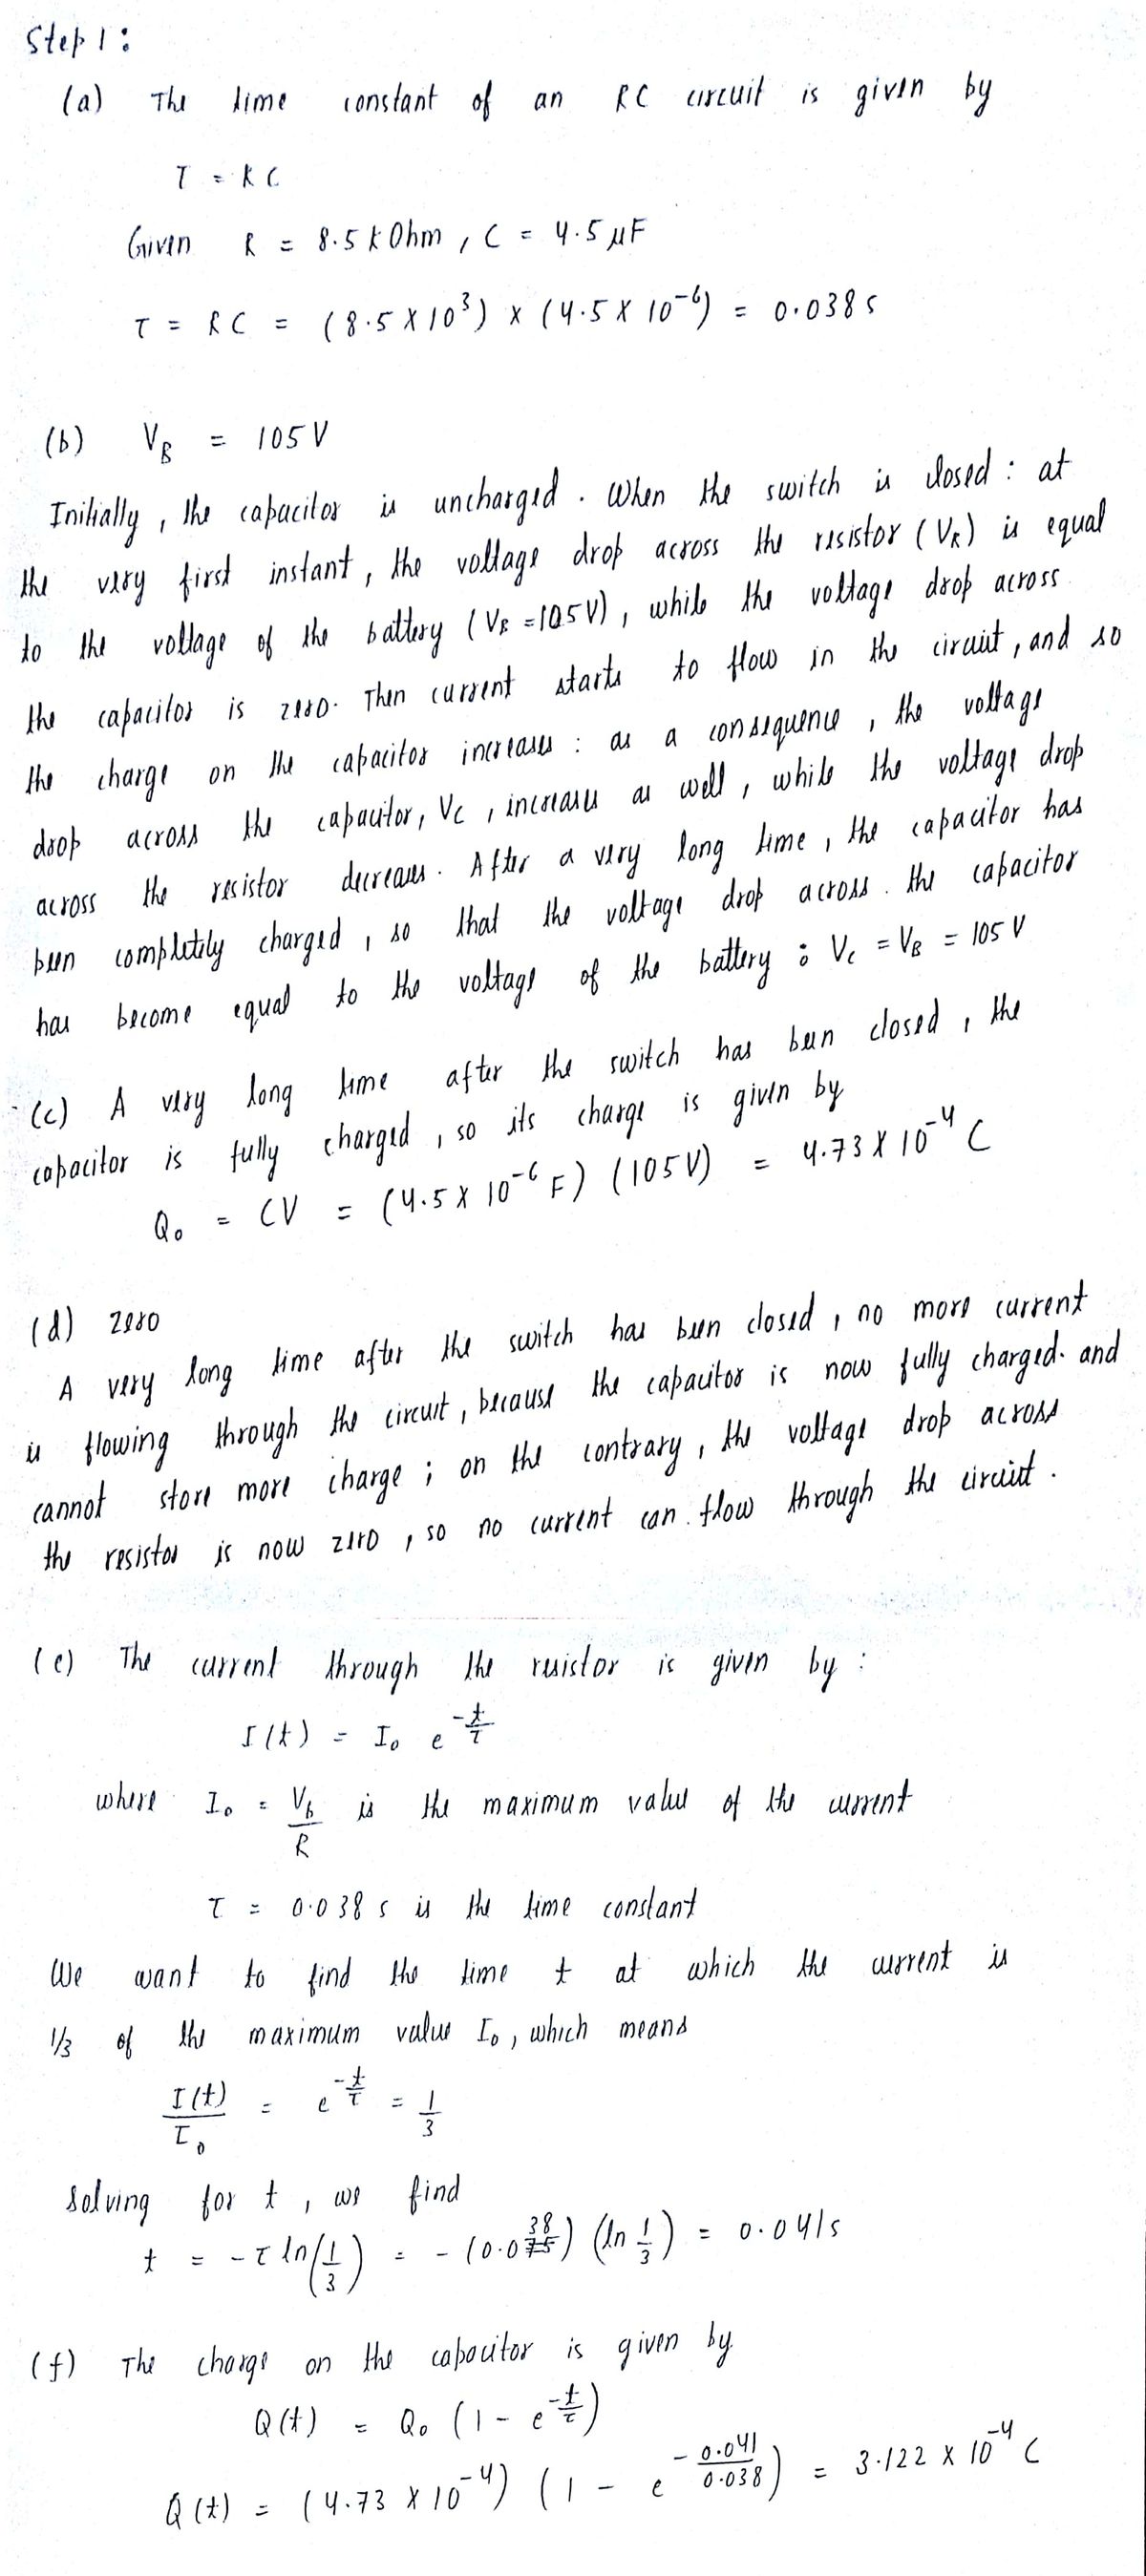 Step 1:
(a) The time constant of an RC circuit is given by
τ = RC
Given R = 8.5 kOhm, C = 4.5 μF
τ = RC = (8.5 X 10³) x (4.5 X 10⁻⁶) = 0.038 s
(b) V_B = 105 V
Initially, the capacitor is uncharged. When the switch is closed: at
the very first instant, the voltage drop across the resistor (V_R) is equal
to the voltage of the battery (V_B = 105 V), while the voltage drop across
the capacitor is zero. Then current starts to flow in the circuit, and so
the charge on the capacitor increases: as a consequence, the voltage
drop across the capacitor, V_C, increases as well, while the voltage drop
across the resistor decreases. After a very long time, the capacitor has
been completely charged, so that the voltage drop across. the capacitor
has become equal to the voltage of the battery: V_C = V_B = 105 V
(c) A very long time after the switch has been closed, the
capacitor is fully charged, so its charge is given by
Q₀ = CV = (4.5 X 10⁻⁶ F) (105 V) = 4.73 X 10⁻⁴ C
(d) zero
A very long time after the switch has been closed, no more current
is flowing through the circuit, because the capacitor is now fully charged. and
cannot store more charge; on the contrary, the voltage drop across
the resistor is now zero, so no current can. flow through the circuit.
(e) The current through the resistor is given by:
I(t) = I₀ e^(-t/τ)
where I₀ = V_b/R is the maximum value of the current
τ = 0.038 s is the time constant
We want to find the time t at which the current is
1/3 of the maximum value I₀, which means
I(t)/I₀ = e^(-t/τ) = 1/3
Solving for t, we find
t = -τ ln(1/3) = -(0.038) (ln 1/3) = 0.041s
(f) The charge on the capacitor is given by
Q(t) = Q₀ (1 - e^(-t/τ))
Q(t) = (4.73 X 10⁻⁴) (1 - e^(-0.041/0.038)) = 3.122 X 10⁻⁴ C